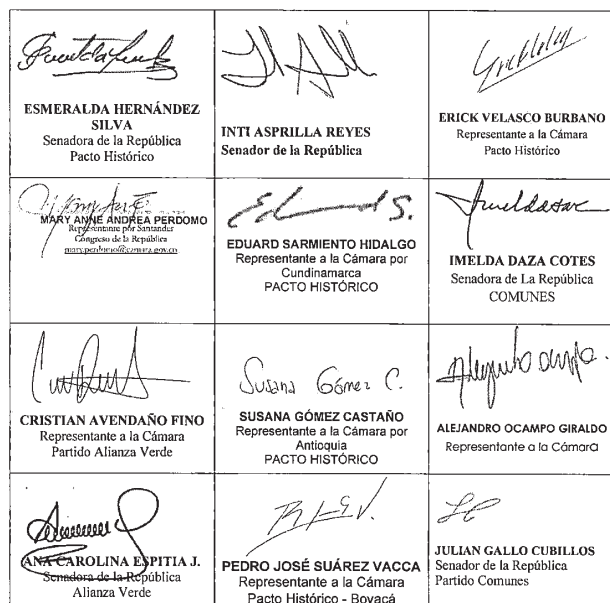 ESMERALDA HERNÁNDEZ
SILVA
Senadora de la República
Pacto Histórico
INTI ASPRILLA REYES
Senador de la República
ERICK VELASCO BURBANO
Representante a la Cámara
Pacto Histórico
MARY ANNE ANDREA PERDOMO
Representante por Santander
Congreso de la República
mary.perdomo@camara.gov.co
EDUARD SARMIENTO HIDALGO
Representante a la Cámara por
Cundinamarca
PACTO HISTÓRICO
IMELDA DAZA COTES
Senadora de La República
COMUNES
CRISTIAN AVENDAÑO FINO
Representante a la Cámara
Partido Alianza Verde
Susana Gómez C.
SUSANA GÓMEZ CASTAÑO
Representante a la Cámara por
Antioquia
PACTO HISTÓRICO
Alejandro Ocampo.
ALEJANDRO OCAMPO GIRALDO
Representante a la Cámara
ANA CAROLINA ESPITIA J.
Senadora de la República
Alianza Verde
PEDRO JOSÉ SUÁREZ VACCA
Representante a la Cámara
Pacto Histórico - Boyacá
JULIAN GALLO CUBILLOS
Senador de la República
Partido Comunes